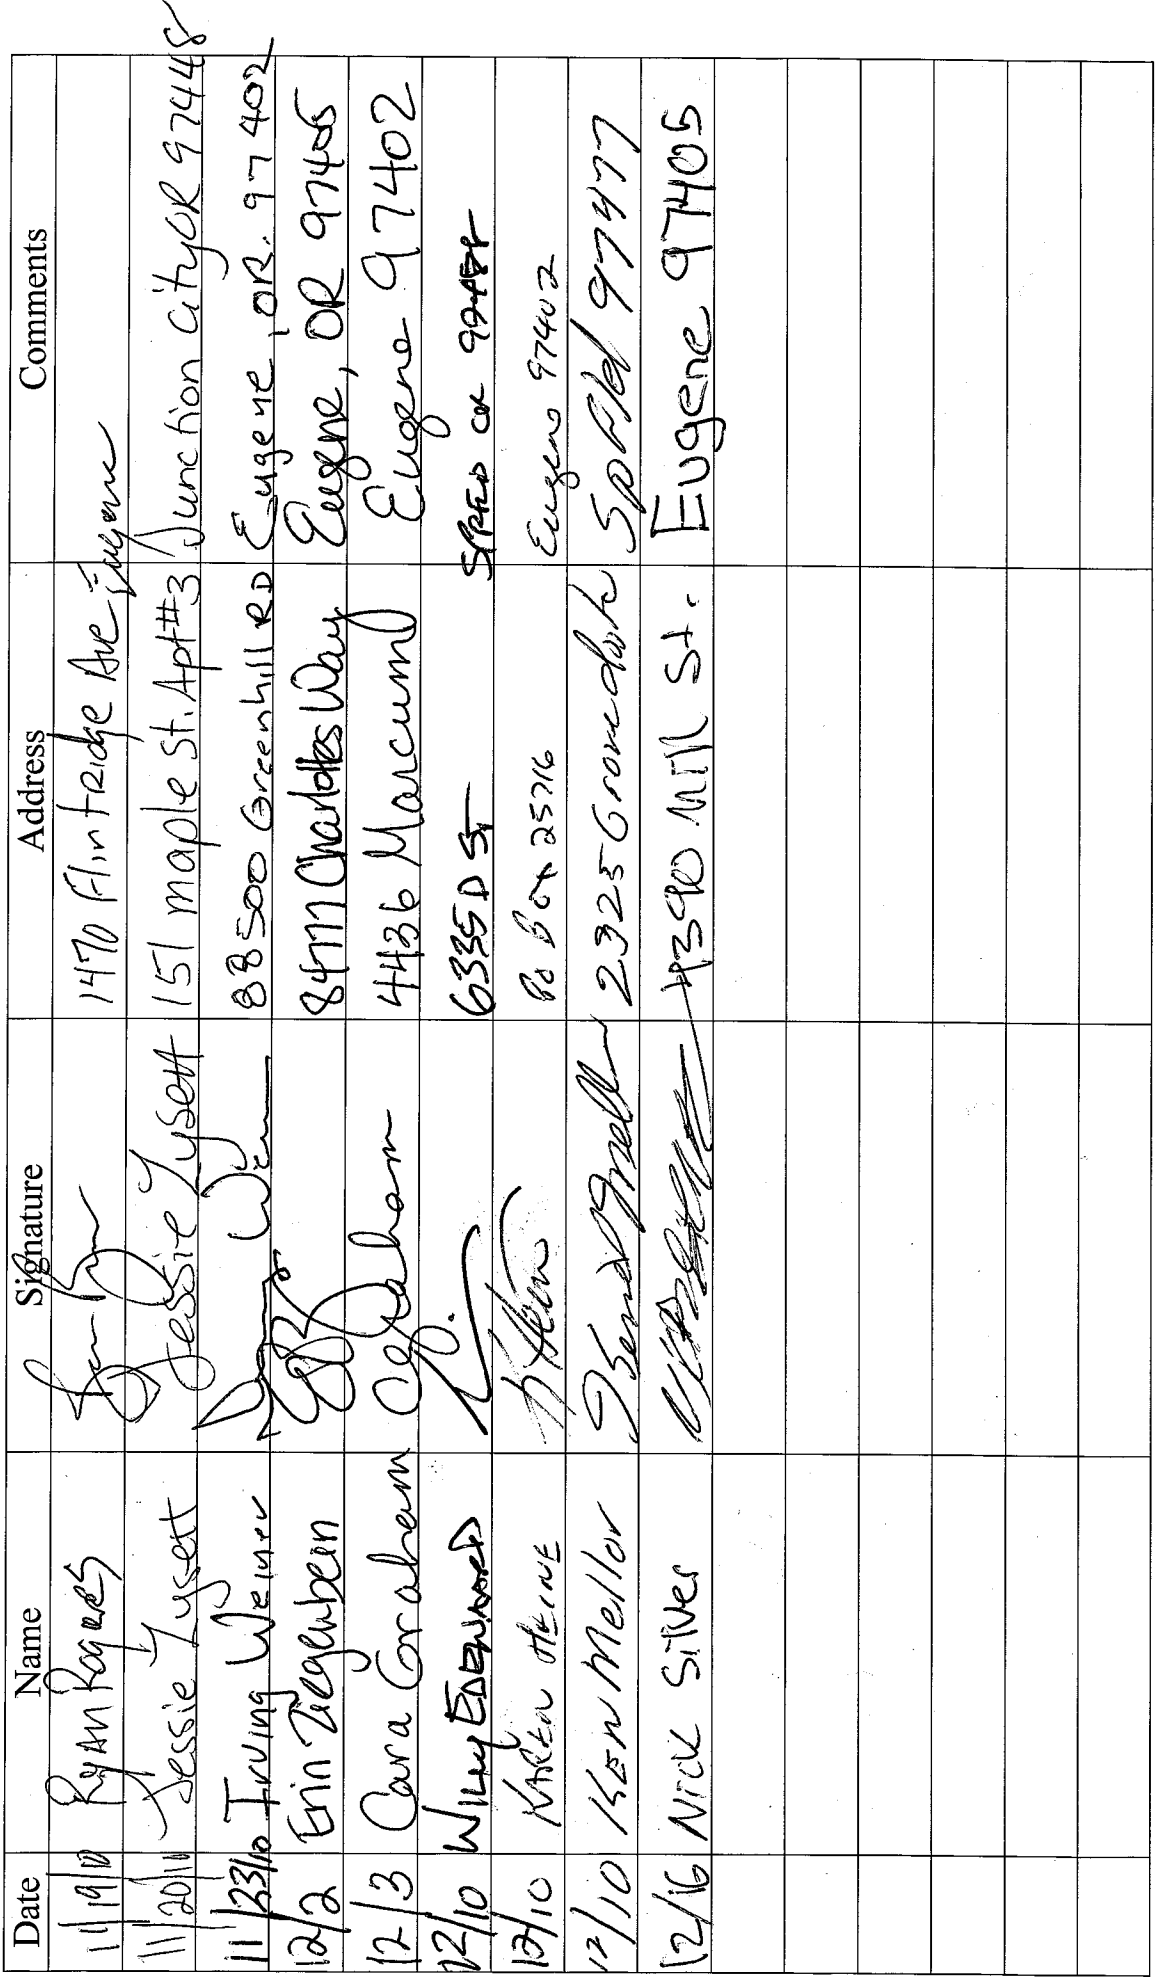 Date Name Signature Address Comments
11/19/10 Ryan Rogers 1470 Flintridge Ave Eugene
11/20/10 Jessie Lysett Jessie Lysett 151 maple St. Apt #3 Junction City OR 97448
11/23/10 Irving Weiner 88500 Greenhill RD Eugene, OR. 97402
12/2 Erin Ziegenbein 84777 Charlottes Way Eugene, OR 97405
12/3 Cara Graham Graham 4436 Marcum Eugene 97402
12/10 Willy Edewaard 6335 D St SPFLD OR
12/10 Karen Heine K Heine Po Box 25716 Eugene 97402
12/10 Ken Mellor 2325 Grovedale Spfld 97477
12/16 Nick Silver 4390 Mill St. Eugene 97405